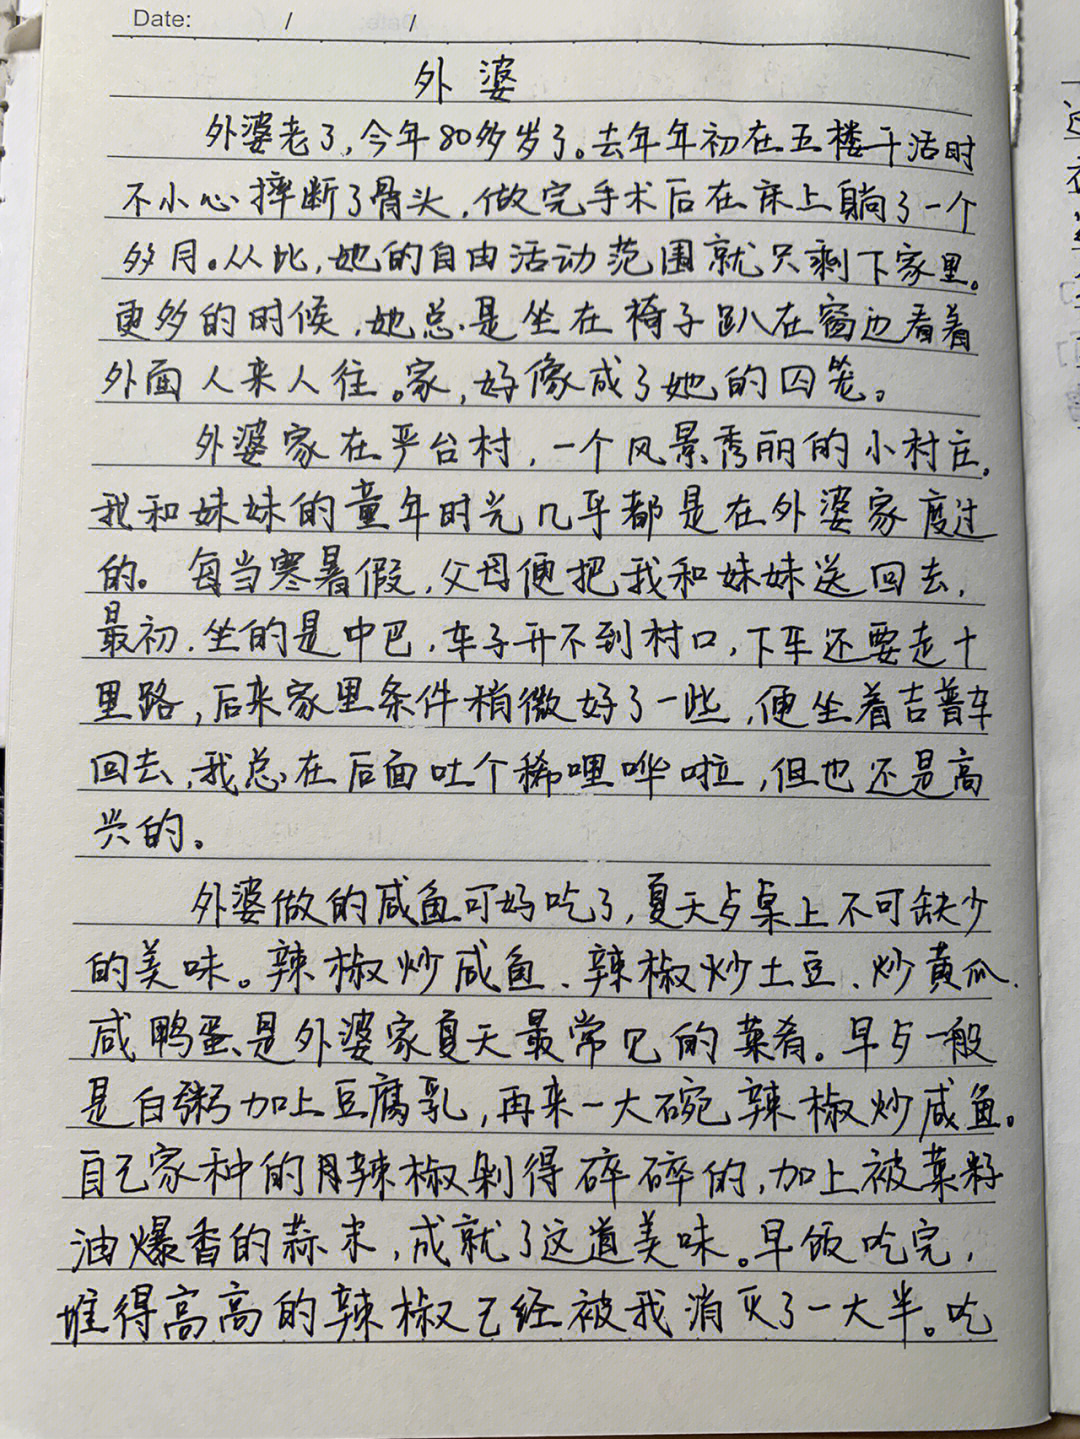 Date: / /
外婆
外婆老了,今年80多岁了。去年年初在五楼干活时
不小心摔断了骨头,做完手术后在床上躺了一个
多月。从此,她的自由活动范围就只剩下家里。
更多的时候,她总是坐在椅子趴在窗边看着
外面人来人往。家,好像成了她的囚笼。
外婆家在平台村,一个风景秀丽的小村庄,
我和妹妹的童年时光几乎都是在外婆家度过
的。每当寒暑假,父母便把我和妹妹送回去,
最初,坐的是中巴,车子开不到村口,下车还要走十
里路,后来家里条件稍微好了一些,便坐着吉普车
回去,我总在后面吐个稀哩哗啦,但也还是高
兴的。
外婆做的咸鱼可好吃了,夏天歺桌上不可缺少
的美味。辣椒炒咸鱼、辣椒炒土豆、炒黄瓜、
咸鸭蛋是外婆家夏天最常见的菜肴。早歺一般
是白粥加上豆腐乳,再来一大碗辣椒炒咸鱼。
自己家种的辣椒剁得碎碎的,加上被菜籽
油爆香的蒜末,成就了这道美味。早饭吃完,
堆得高高的辣椒已经被我消灭了一大半。吃